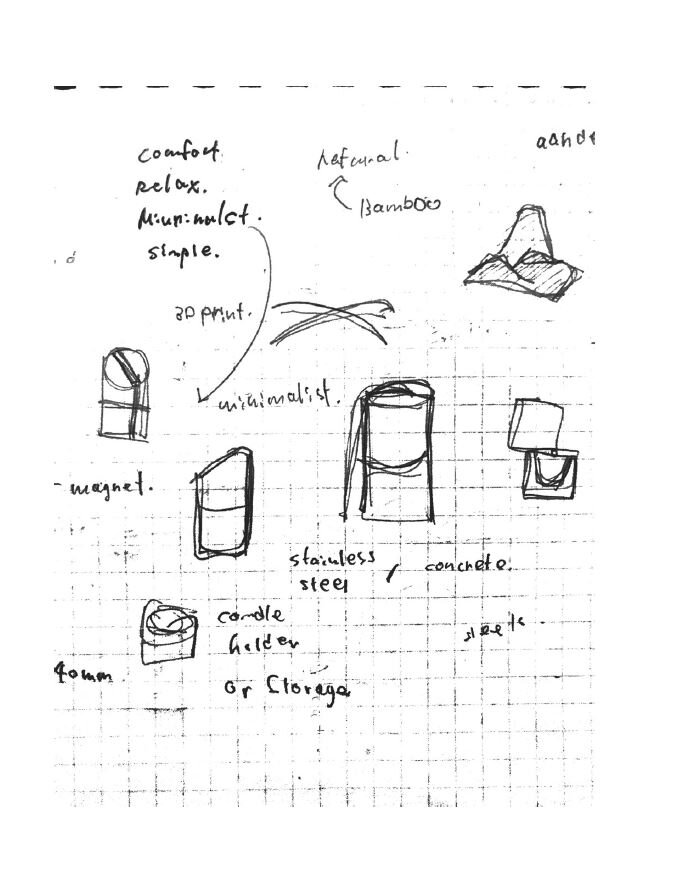 comfort.
Relax.
Minimalst.
simple.
natural.
Bamboo
3D print.
minimalist.
- magnet.
stainless
steel / concrete.
candle
holder
40mm
or Storage